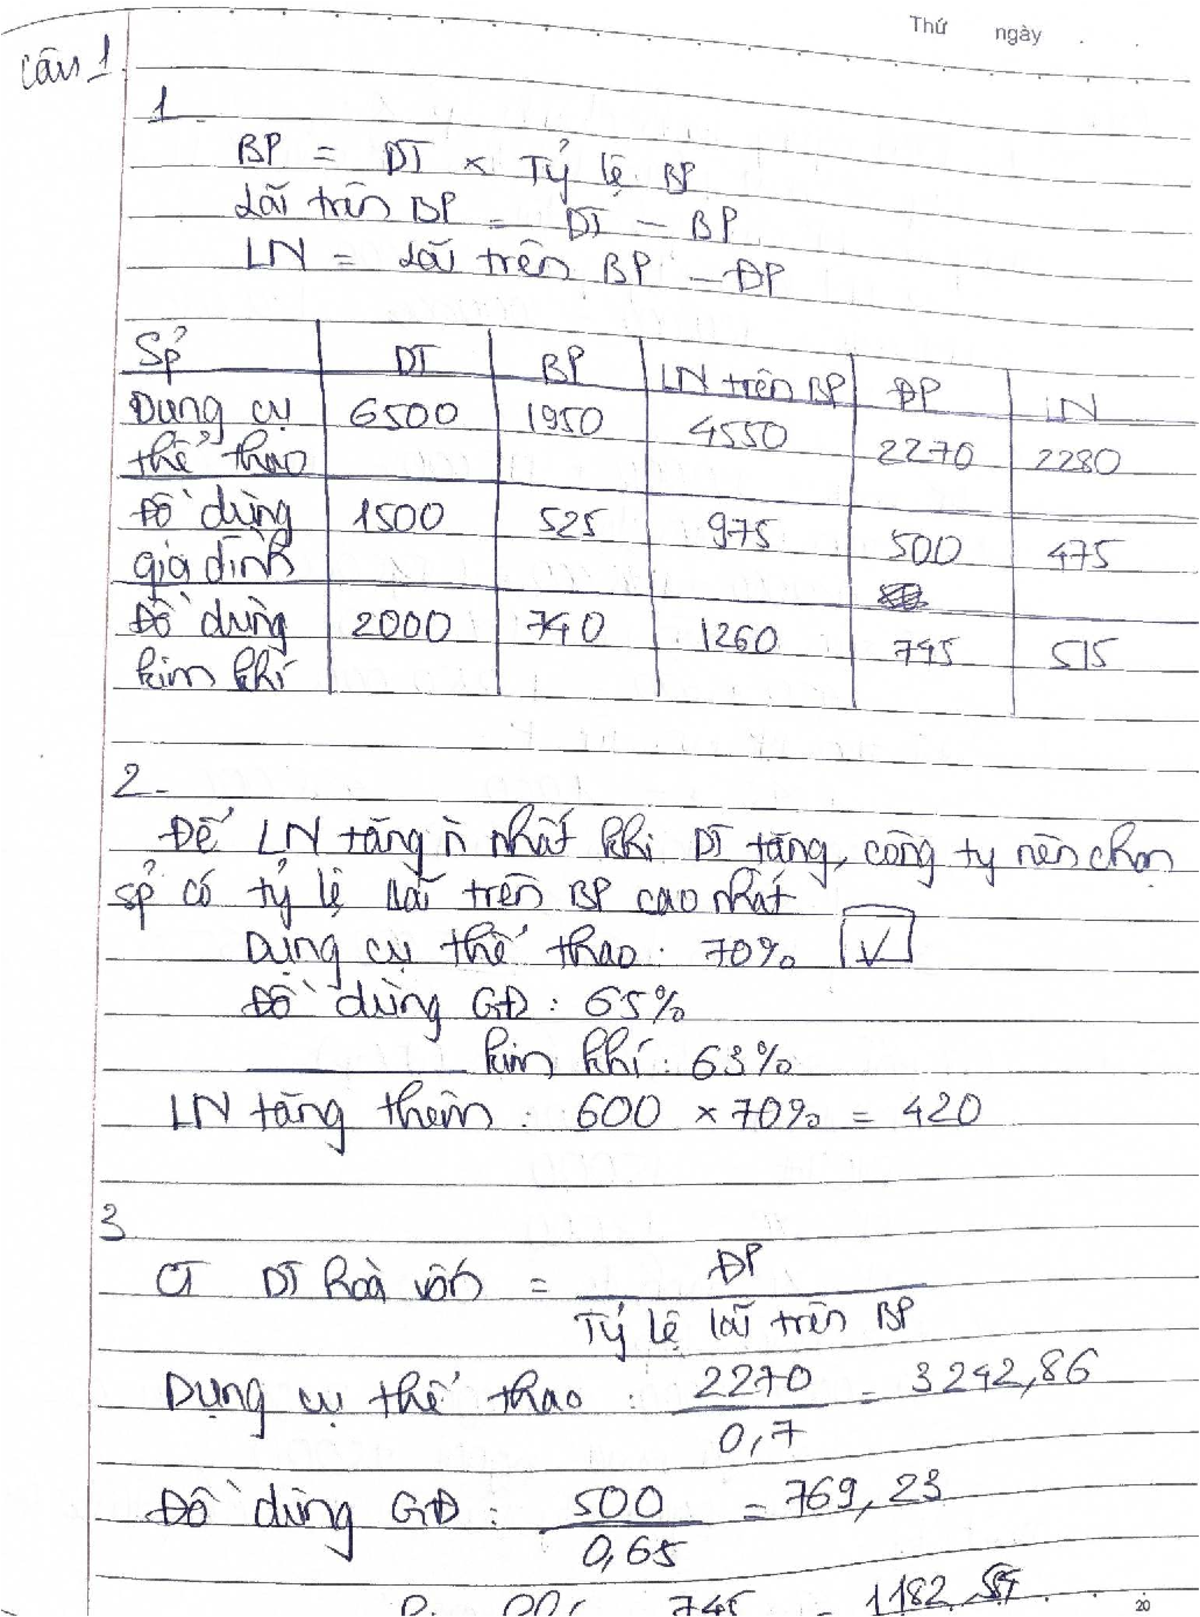 Thứ ngày
Câu 1
1
BP = DT × Tỷ lệ BP
Lãi trên BP = DT - BP
LN = Lãi trên BP - ĐP
Sp̉ DT BP LN trên BP ĐP LN
Dụng cụ thể thao 6500 1950 4550 2270 2280
Đồ dùng gia đình 1500 525 975 500 475
Đồ dùng kim khí 2000 740 1260 745 515
2-
Để LN tăng n̉ nhất khi DT tăng, công ty nên chọn
sp̉ có tỷ lệ lãi trên BP cao nhất
Dụng cụ thể thao: 70% ✓
Đồ dùng GĐ: 65%
kim khí: 63%
LN tăng thêm: 600 × 70% = 420
3
CT DT hoà vốn = ĐP / Tỷ lệ lãi trên BP
Dụng cụ thể thao: 2270 / 0,7 = 3242,86
Đồ dùng GĐ: 500 / 0,65 = 769,23
745 = 1182,
20